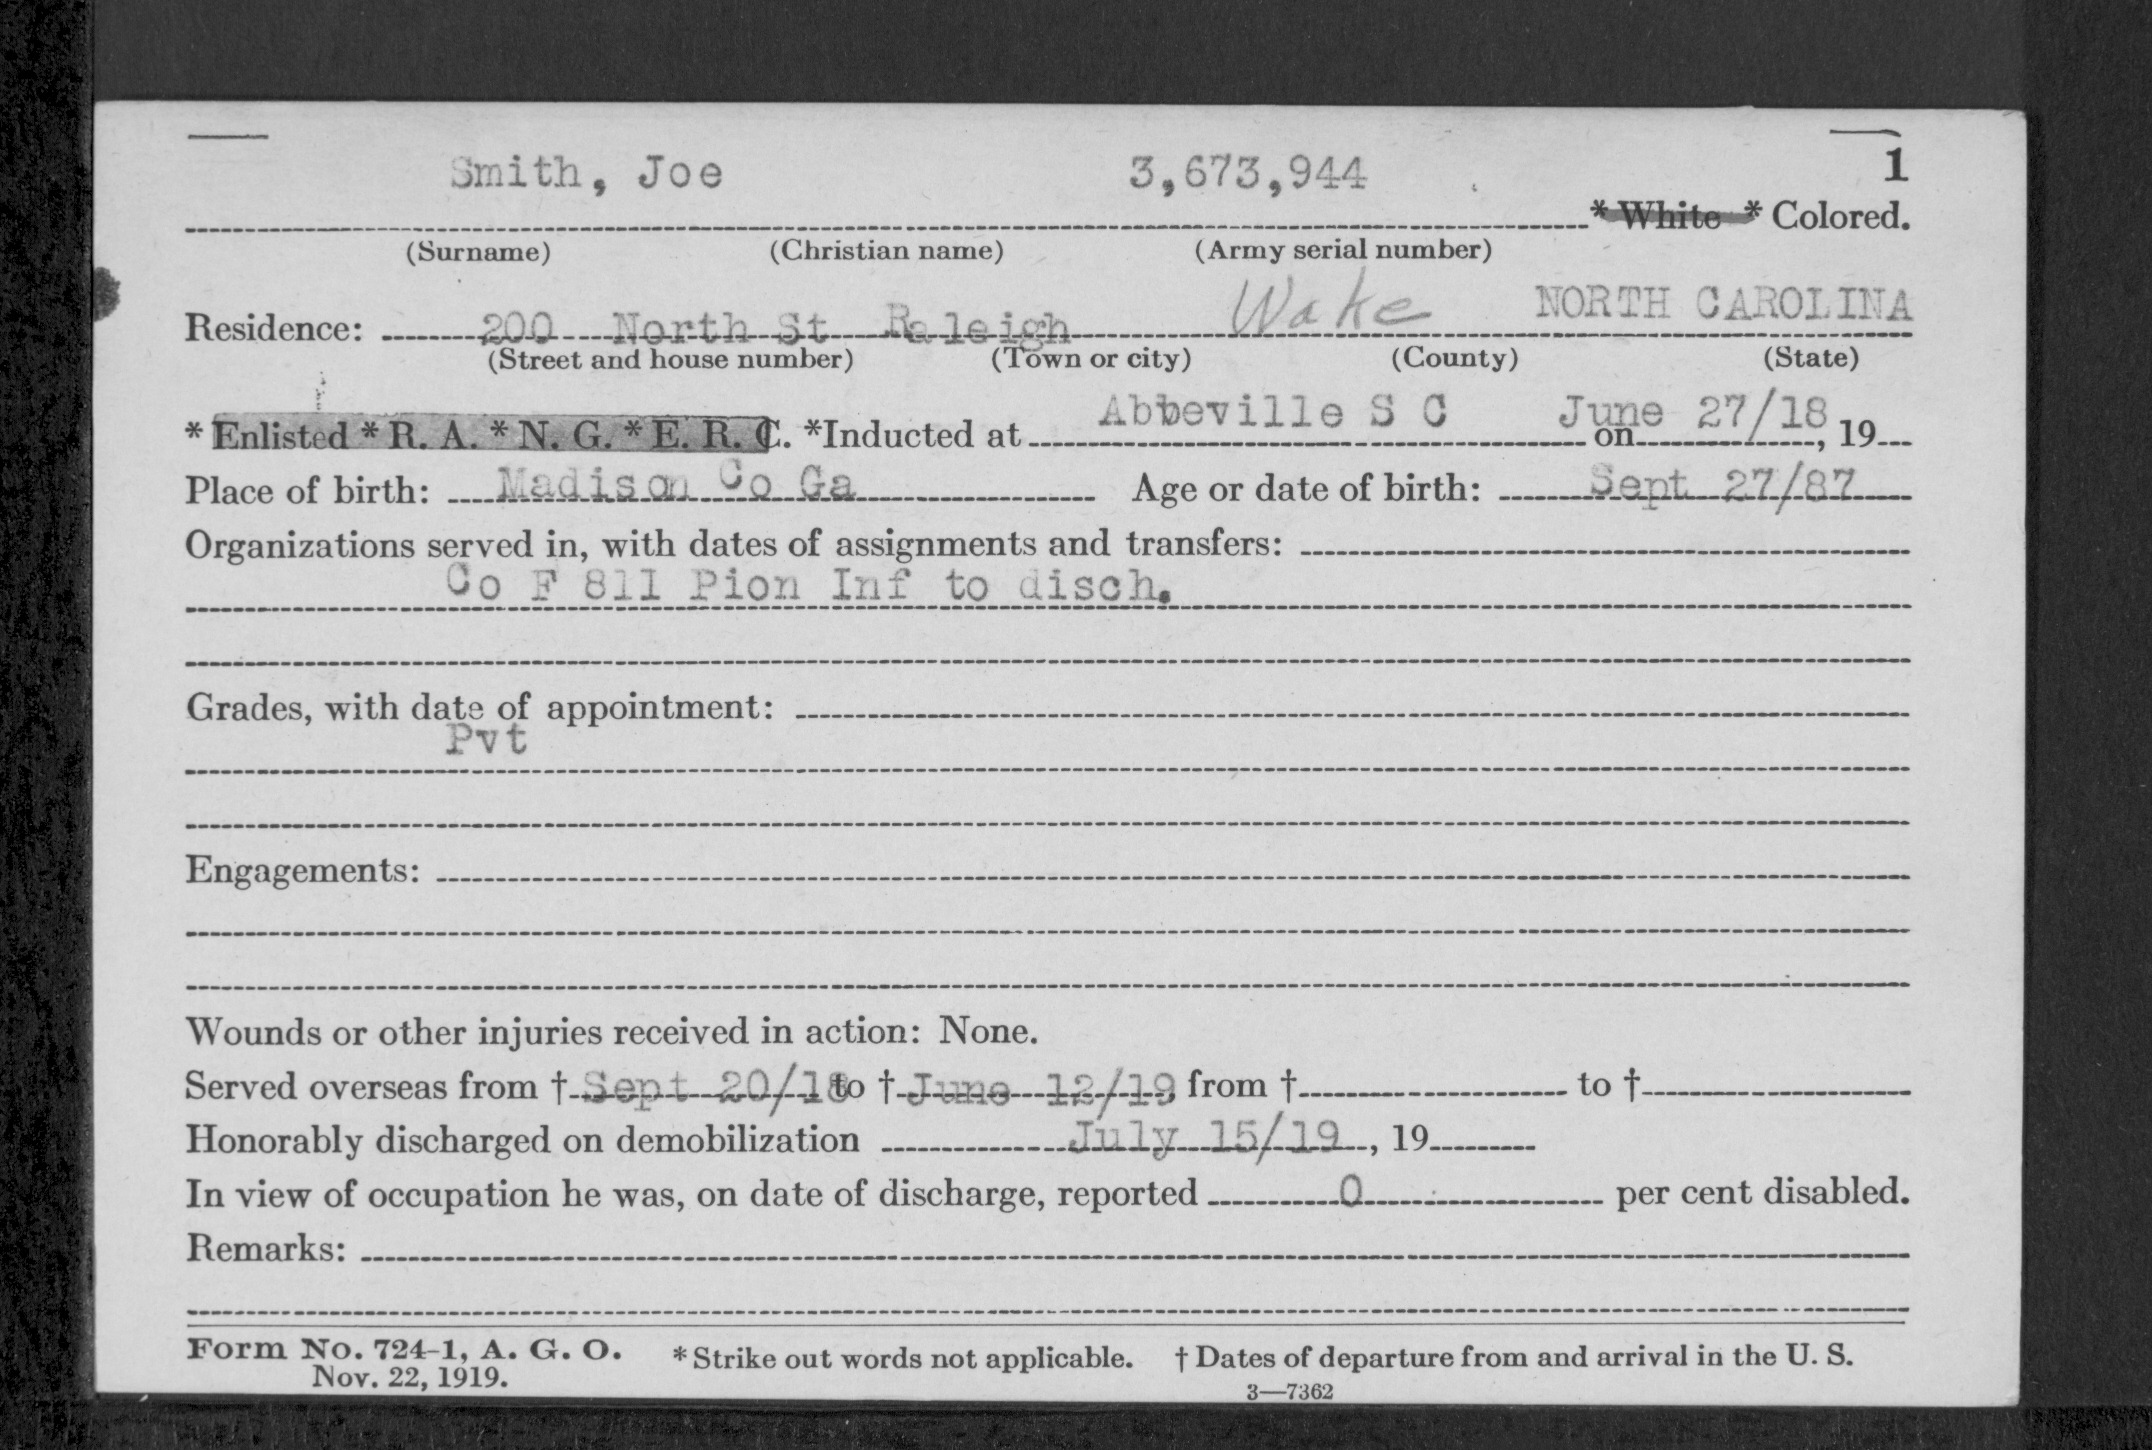 Smith, Joe 3,673,944 1
* White * Colored.
(Surname) (Christian name) (Army serial number)
Residence: 200 North St Raleigh Wake NORTH CAROLINA
(Street and house number) (Town or city) (County) (State)
* Enlisted * R. A. * N. G. * E. R. C. *Inducted at Abbeville S C on June 27/18, 19
Place of birth: Madison Co Ga Age or date of birth: Sept 27/87
Organizations served in, with dates of assignments and transfers:
Co F 811 Pion Inf to disch.
Grades, with date of appointment:
Pvt
Engagements:
Wounds or other injuries received in action: None.
Served overseas from † Sept 20/18 to † June 12/19, from † to †
Honorably discharged on demobilization July 15/19, 19
In view of occupation he was, on date of discharge, reported 0 per cent disabled.
Remarks:
Form No. 724-1, A. G. O. * Strike out words not applicable. † Dates of departure from and arrival in the U. S.
Nov. 22, 1919. 3—7362